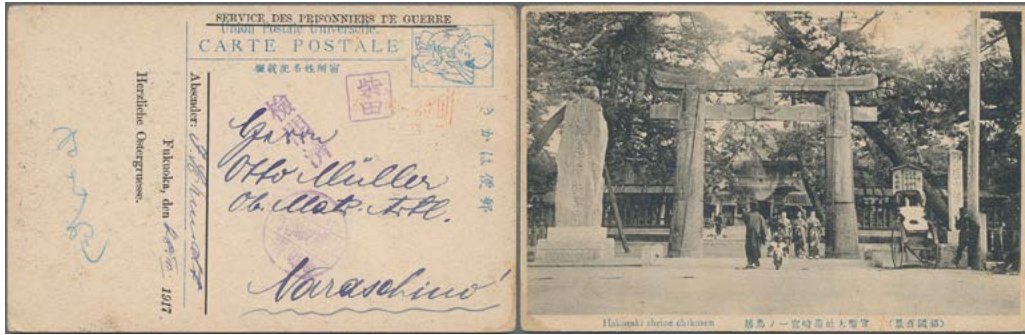 SERVICE DES PRISONNIERS DE GUERRE
Union Postale Universelle.
CARTE POSTALE
きかは便郵
検閲済
Herrn
Otto Müller
Ob. Matr. Artl.
Naraschino
Absender:
Fukuoka, den 1917
Herzliche Ostergruesse.
Hakozaki shrine chikuzen
官幣大社筥崎宮一ノ鳥居